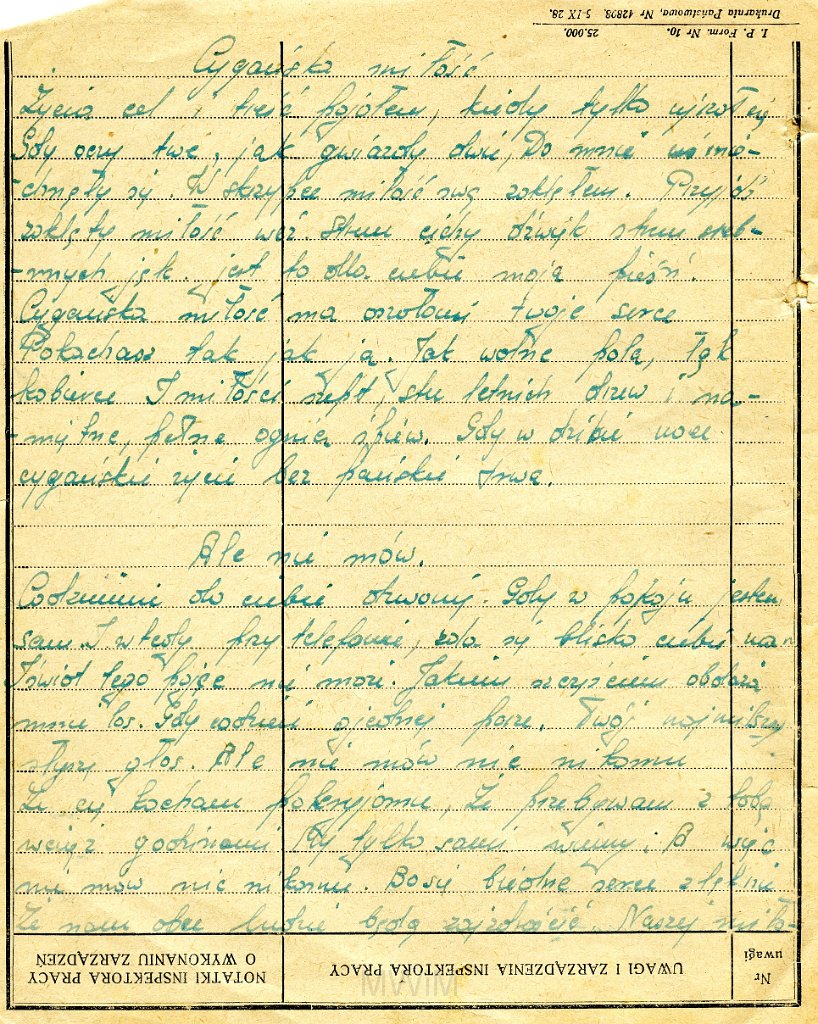 I. P. Form. Nr 10. 25.000.
Drukarnia Państwowa, Nr 42898. 5-IX 28.
Cygańska miłość
Życia cel i treść pojąłem, kiedy tylko ujrzałem
Gdy oczy twe, jak gwiazdy dwie, Do mnie uśmie-
-chnęły się. W skrzypce miłość swą zakląłem. Przyjdź
zaklętą miłość weź. Strun cichy dźwięk strun sreb-
-rnych jęk. jest to dla ciebie moja pieśń.
Cygańska miłość ma oszołomi twoje serce
Pokochasz tak jak ja. Jak wolne pola, łąk
kobierce I miłości szept, stu letnich drzew i na-
-miętne, pełne ognia śpiew. Gdy w dzikie noce
cygańskie życie bez pańskie trwa.
Ale nie mów.
Codziennie do ciebie dzwonię. Gdy w pokoju jestem
sam. I wtedy przy telefonie, zda się blisko ciebie mam
I świat tego pojąć nie może. Jakiem szczęściem obdarza
mnie los. Gdy codzień o jednej porze. Twój najmilszy
słyszę głos. Ale nie mów nic nikomu
Że cię kocham pokryjomu, Że przebywam z tobą
wciąż godzinami My tylko sami wiemy. A więc
nie mów nic nikomu. Bo się biedne serce zlęknie
Że nam obce ludzie będą zazdrościć. Naszej miło-
NOTATKI INSPEKTORA PRACY O WYKONANIU ZARZĄDZEŃ
UWAGI I ZARZĄDZENIA INSPEKTORA PRACY
Nr uwagi
MWiM